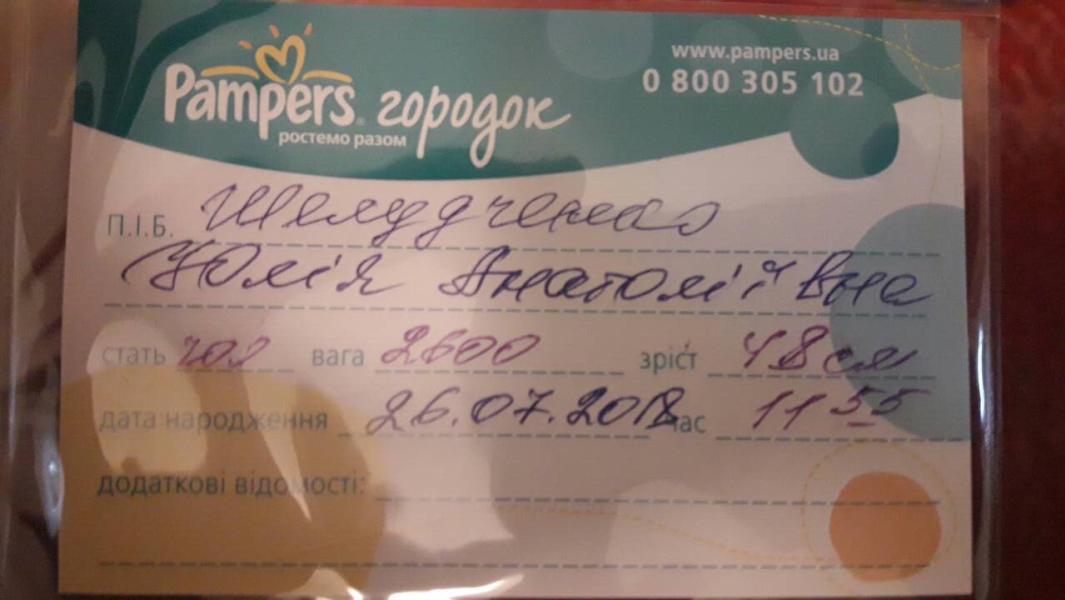 www.pampers.ua
0 800 305 102
Pampers городок
ростемо разом
П.І.Б. Шелудченко
Юлія Анатоліївна
стать чол вага 2600 зріст 48 см
дата народження 26.07.2018 час 11 55
додаткові відомості: